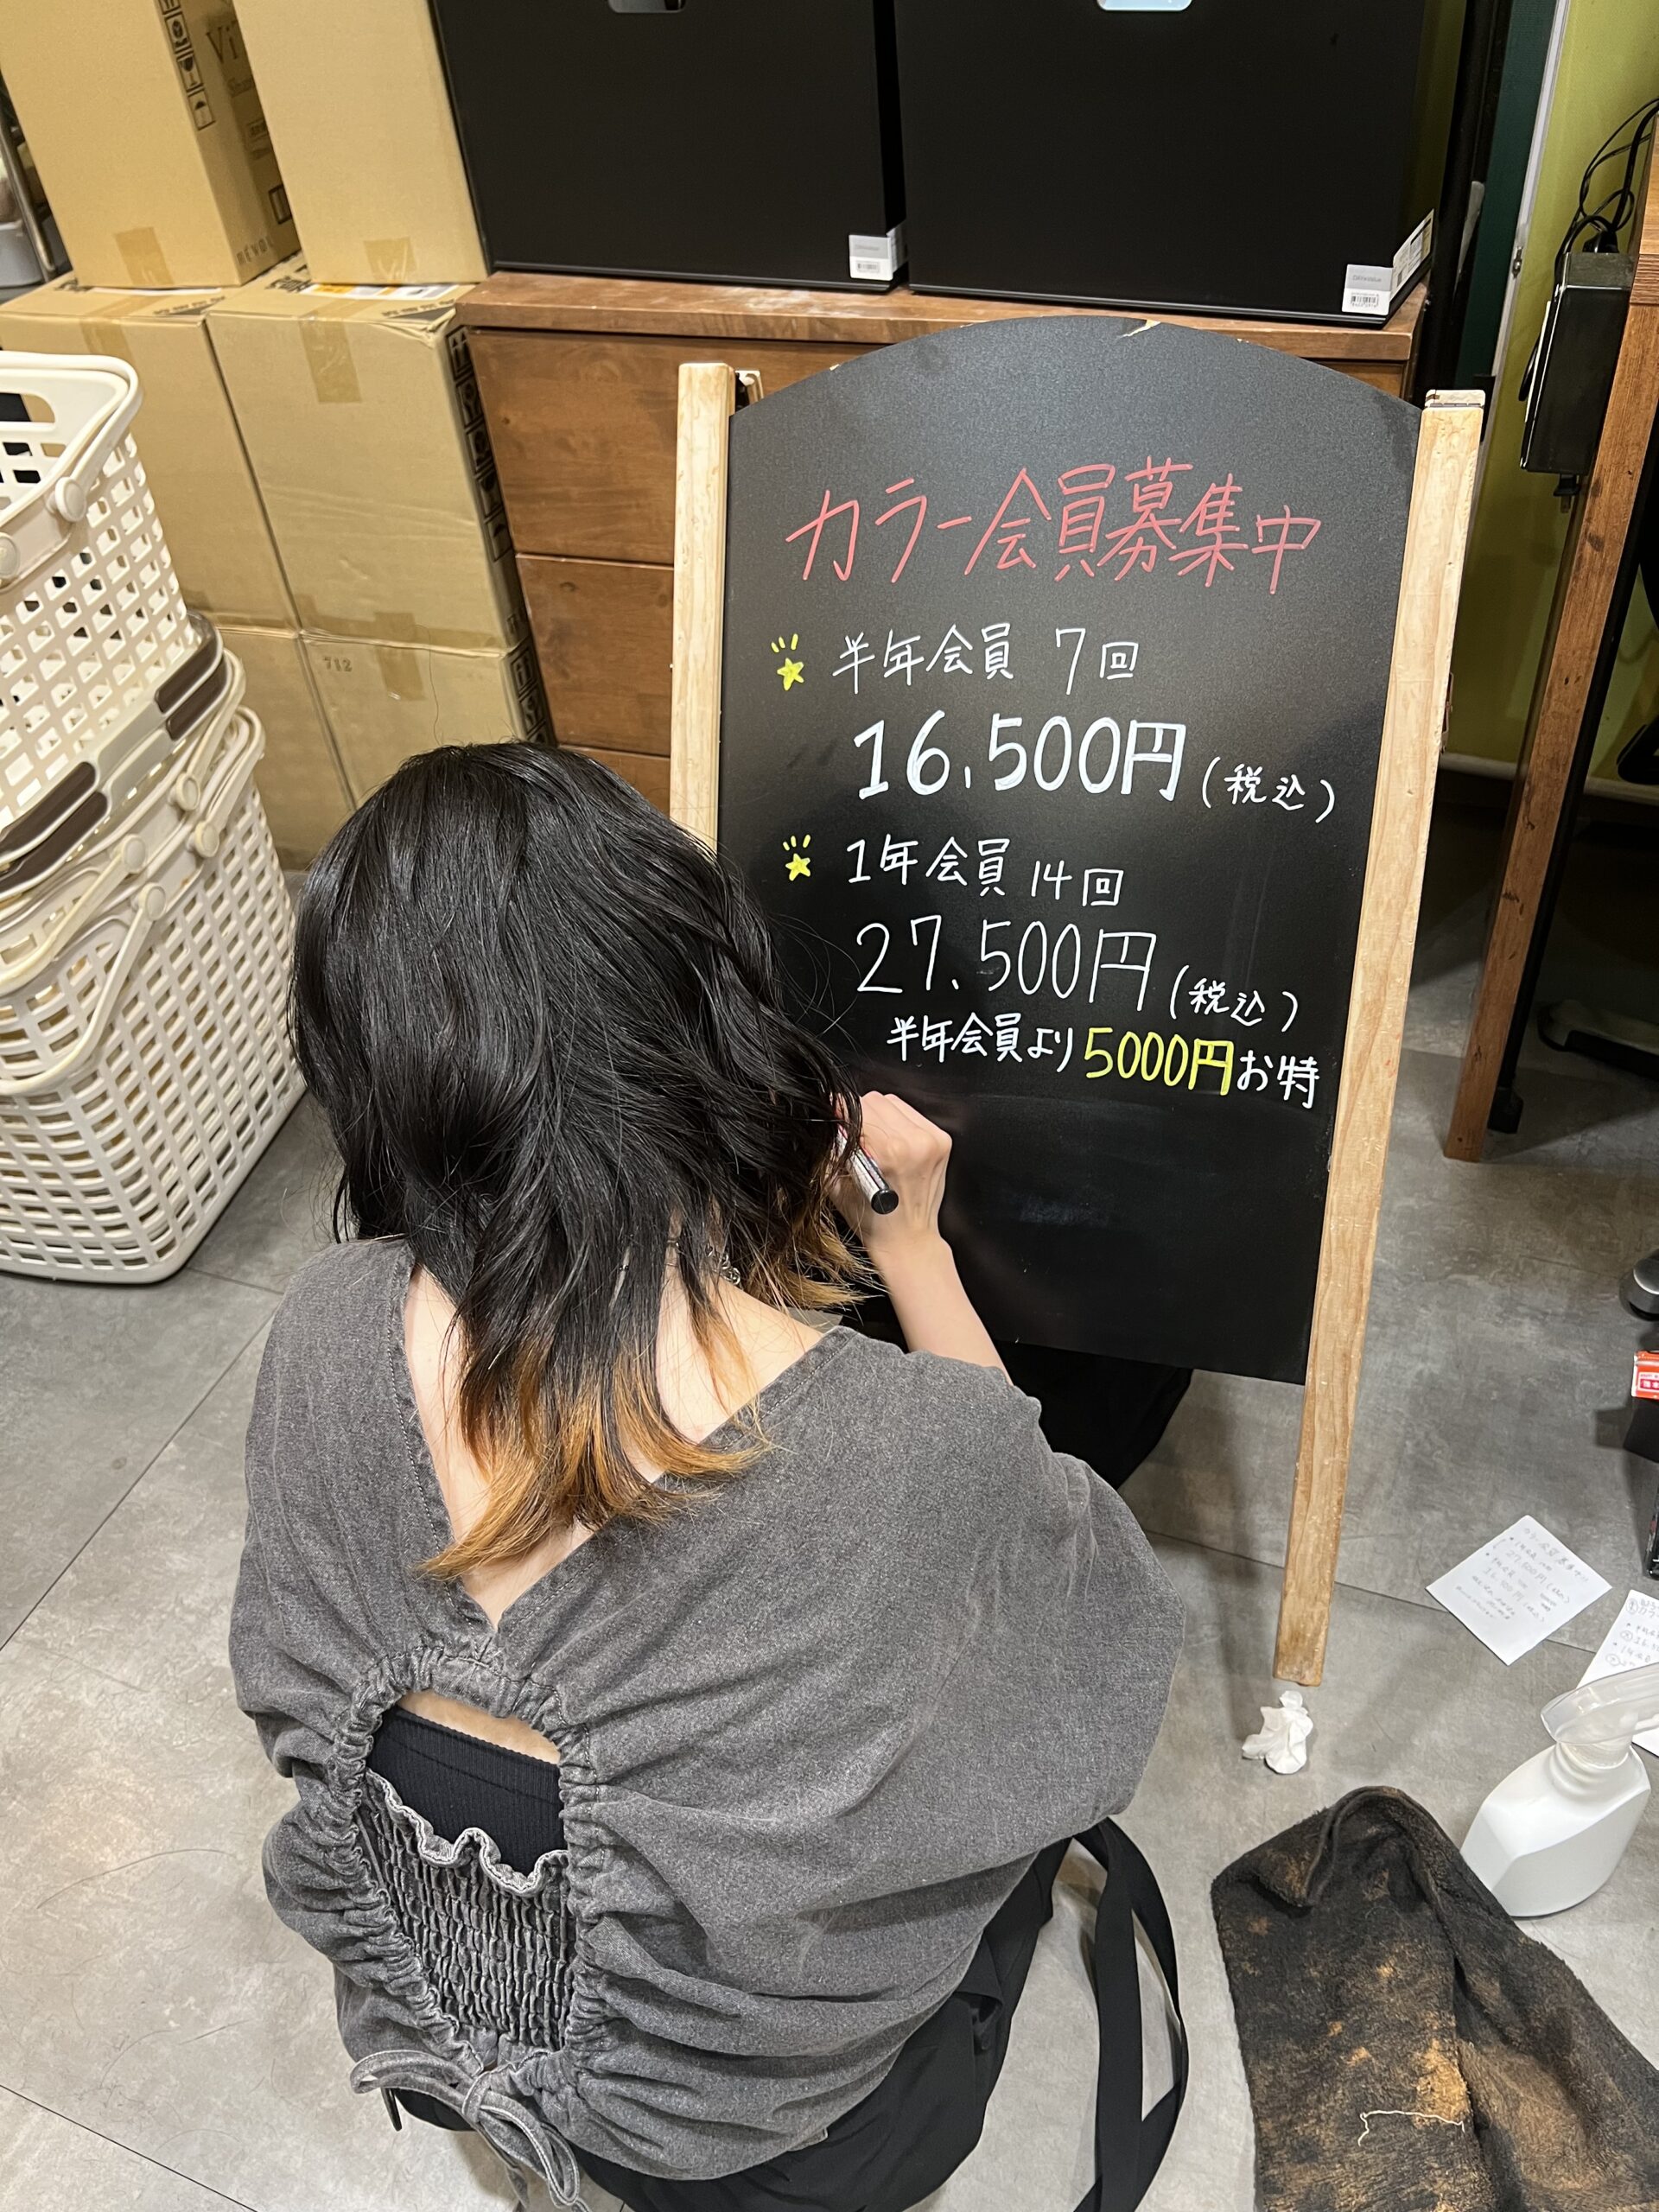 カラー会員募集中
半年会員 7回
16,500円(税込)
1年会員 14回
27,500円(税込)
半年会員より5000円お特
712